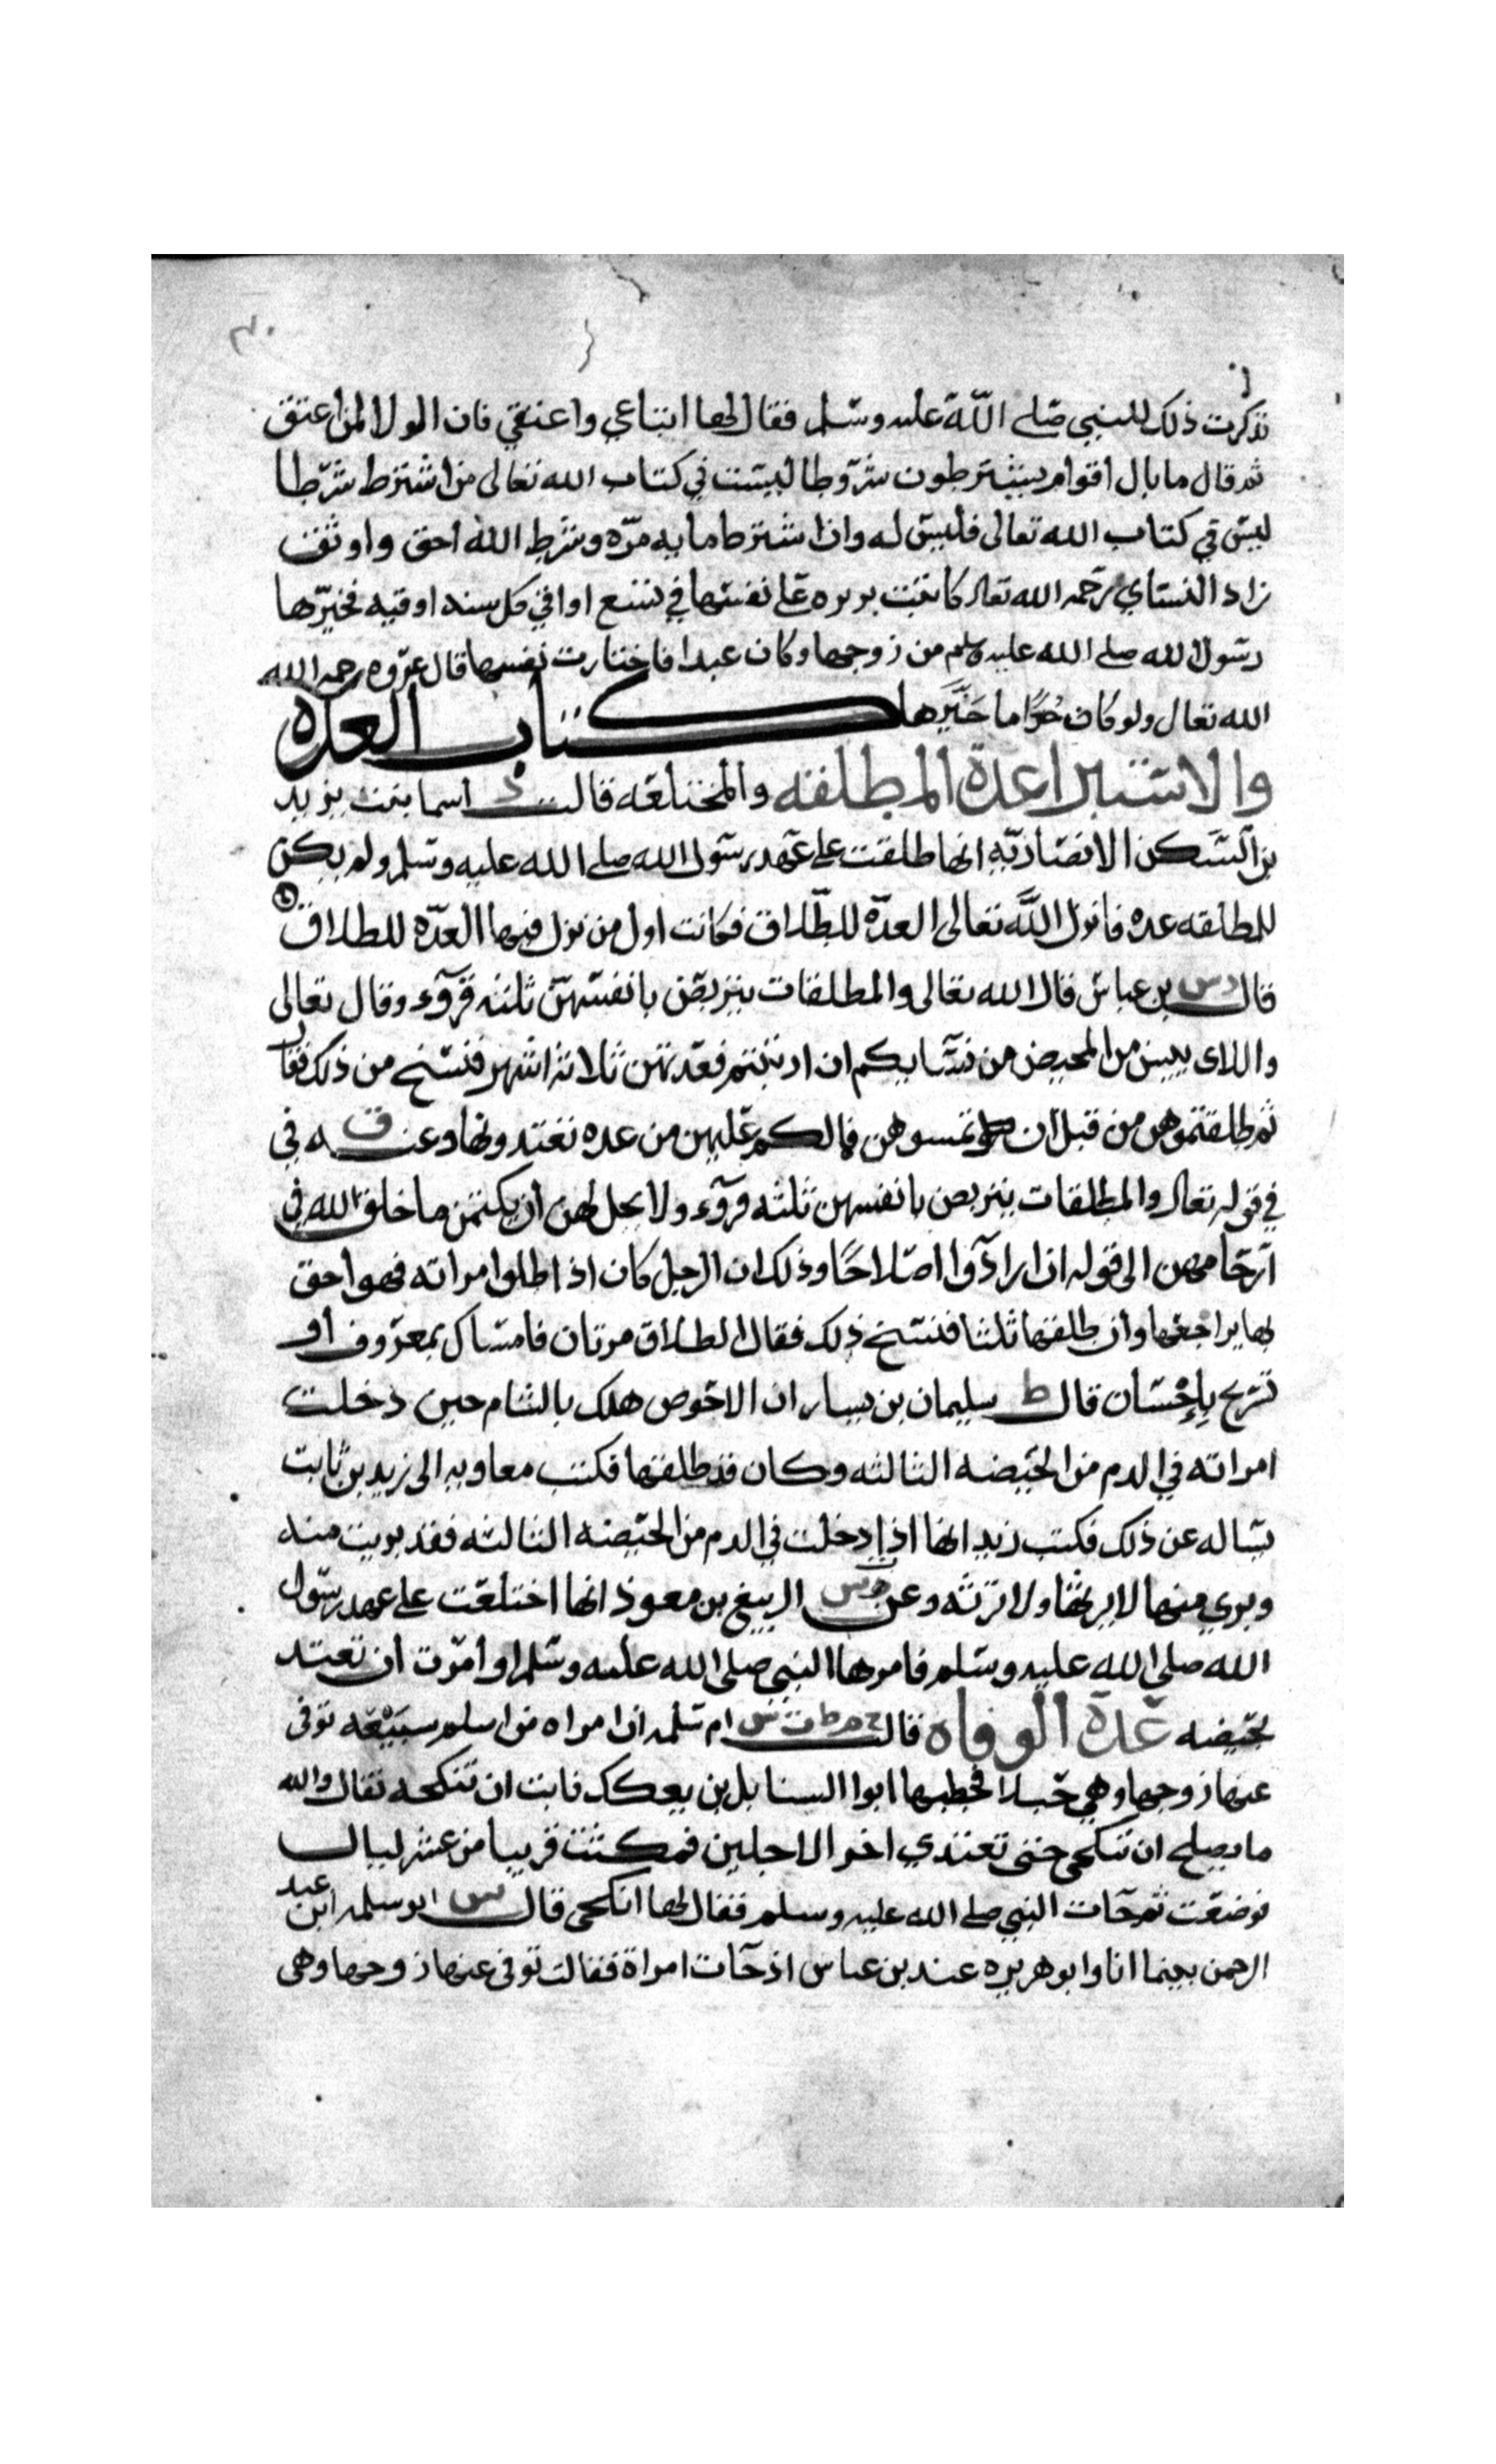 ذكرت ذلك للنبي صلى الله عليه وسلم فقال لها ابتاعي واعتقي فان الولا لمن اعتق
ثم قال ما بال اقوام يشترطون شروطا ليست في كتاب الله تعالى من اشترط شرطا
ليس في كتاب الله تعالى فليس له وان اشترط مايه مره وشرط الله احق واوثق
زاد النساي رحمه الله تعالى كاتبت بريره على نفسها في تسع اواقي كل سنه اوقيه فخيرها
رسول الله صلى الله عليه وسلم من زوجها وكان عبدا فاختارت نفسها قال عروه رحمه الله
الله تعالى ولو كان حُرًا ما خَيَّرَها كتاب العده
والاستبرا عدة المطلقه والمختلعه قالت د اسما بنت يزيد
بن السكن الانصاريه انها طلقت على عهد رسول الله صلى الله عليه وسلم ولم يكن
للمطلقه عده فانزل الله تعالى العده للطلاق فكانت اول من نزل فيها العدّه للطلاق
قال دس بن عباس قال الله تعالى والمطلقات يتربصن بانفسهن ثلثه قروء وقال تعالى
واللاى ييسن من المحيض من نسايكم ان ارتبتم فعدتهن ثلاثة اشهر فنسخ من ذلك فقال
ثم طلقتموهن من قبل ان تمسوهن فمالكم عليهن من عده تعتدونها وعنه في
في قوله تعالى والمطلقات يتربصن بانفسهن ثلثه قروء ولا يحل لهن ان يكتمن ما خلق الله في
ارحامهن الى قوله ان ارادوا اصلاحًا وذلك ان الرجل كان اذا طلق امراته فهو احق
بها يراجعها وان طلقها ثلثا فنسخ ذلك فقال الطلاق مرتان فامساك بمعروف او
تسريح بإحسان قال ط سليمان بن يسار ان الاحوص هلك بالشام حين دخلت
امراته في الدم من الحيضه الثالثه وكان قد طلقها فكتب معاويه الى زيد بن ثابت
يساله عن ذلك فكتب زيد انها اذا دخلت في الدم من الحيضه الثالثه فقد بريت منه
وبري منها لا يرثها ولا ترثه وعن الربيع بن معوذ انها اختلعت على عهد رسول
الله صلى الله عليه وسلم فامرها النبي صلى الله عليه وسلم او امرت ان تعتد
بحيضه عدة الوفاه قالت ام سلمه ان امراه من اسلم سبيعه توفى
عنها زوجها وهي حبلا فخطبها ابوا السنابل بن بعكك فابت ان تنكحه فقال والله
ما يصلح ان تنكحى حتى تعتدي اخر الاجلين فمكثت قريبا من عشر ليال
فوضعت ثم جات النبي صلى الله عليه وسلم فقال لها انكحى قال س ابو سلمه ابن عبد
الرحمن بينما انا وابو هريره عند بن عباس اذ جات امراة فقالت توفى عنها زوجها وهى